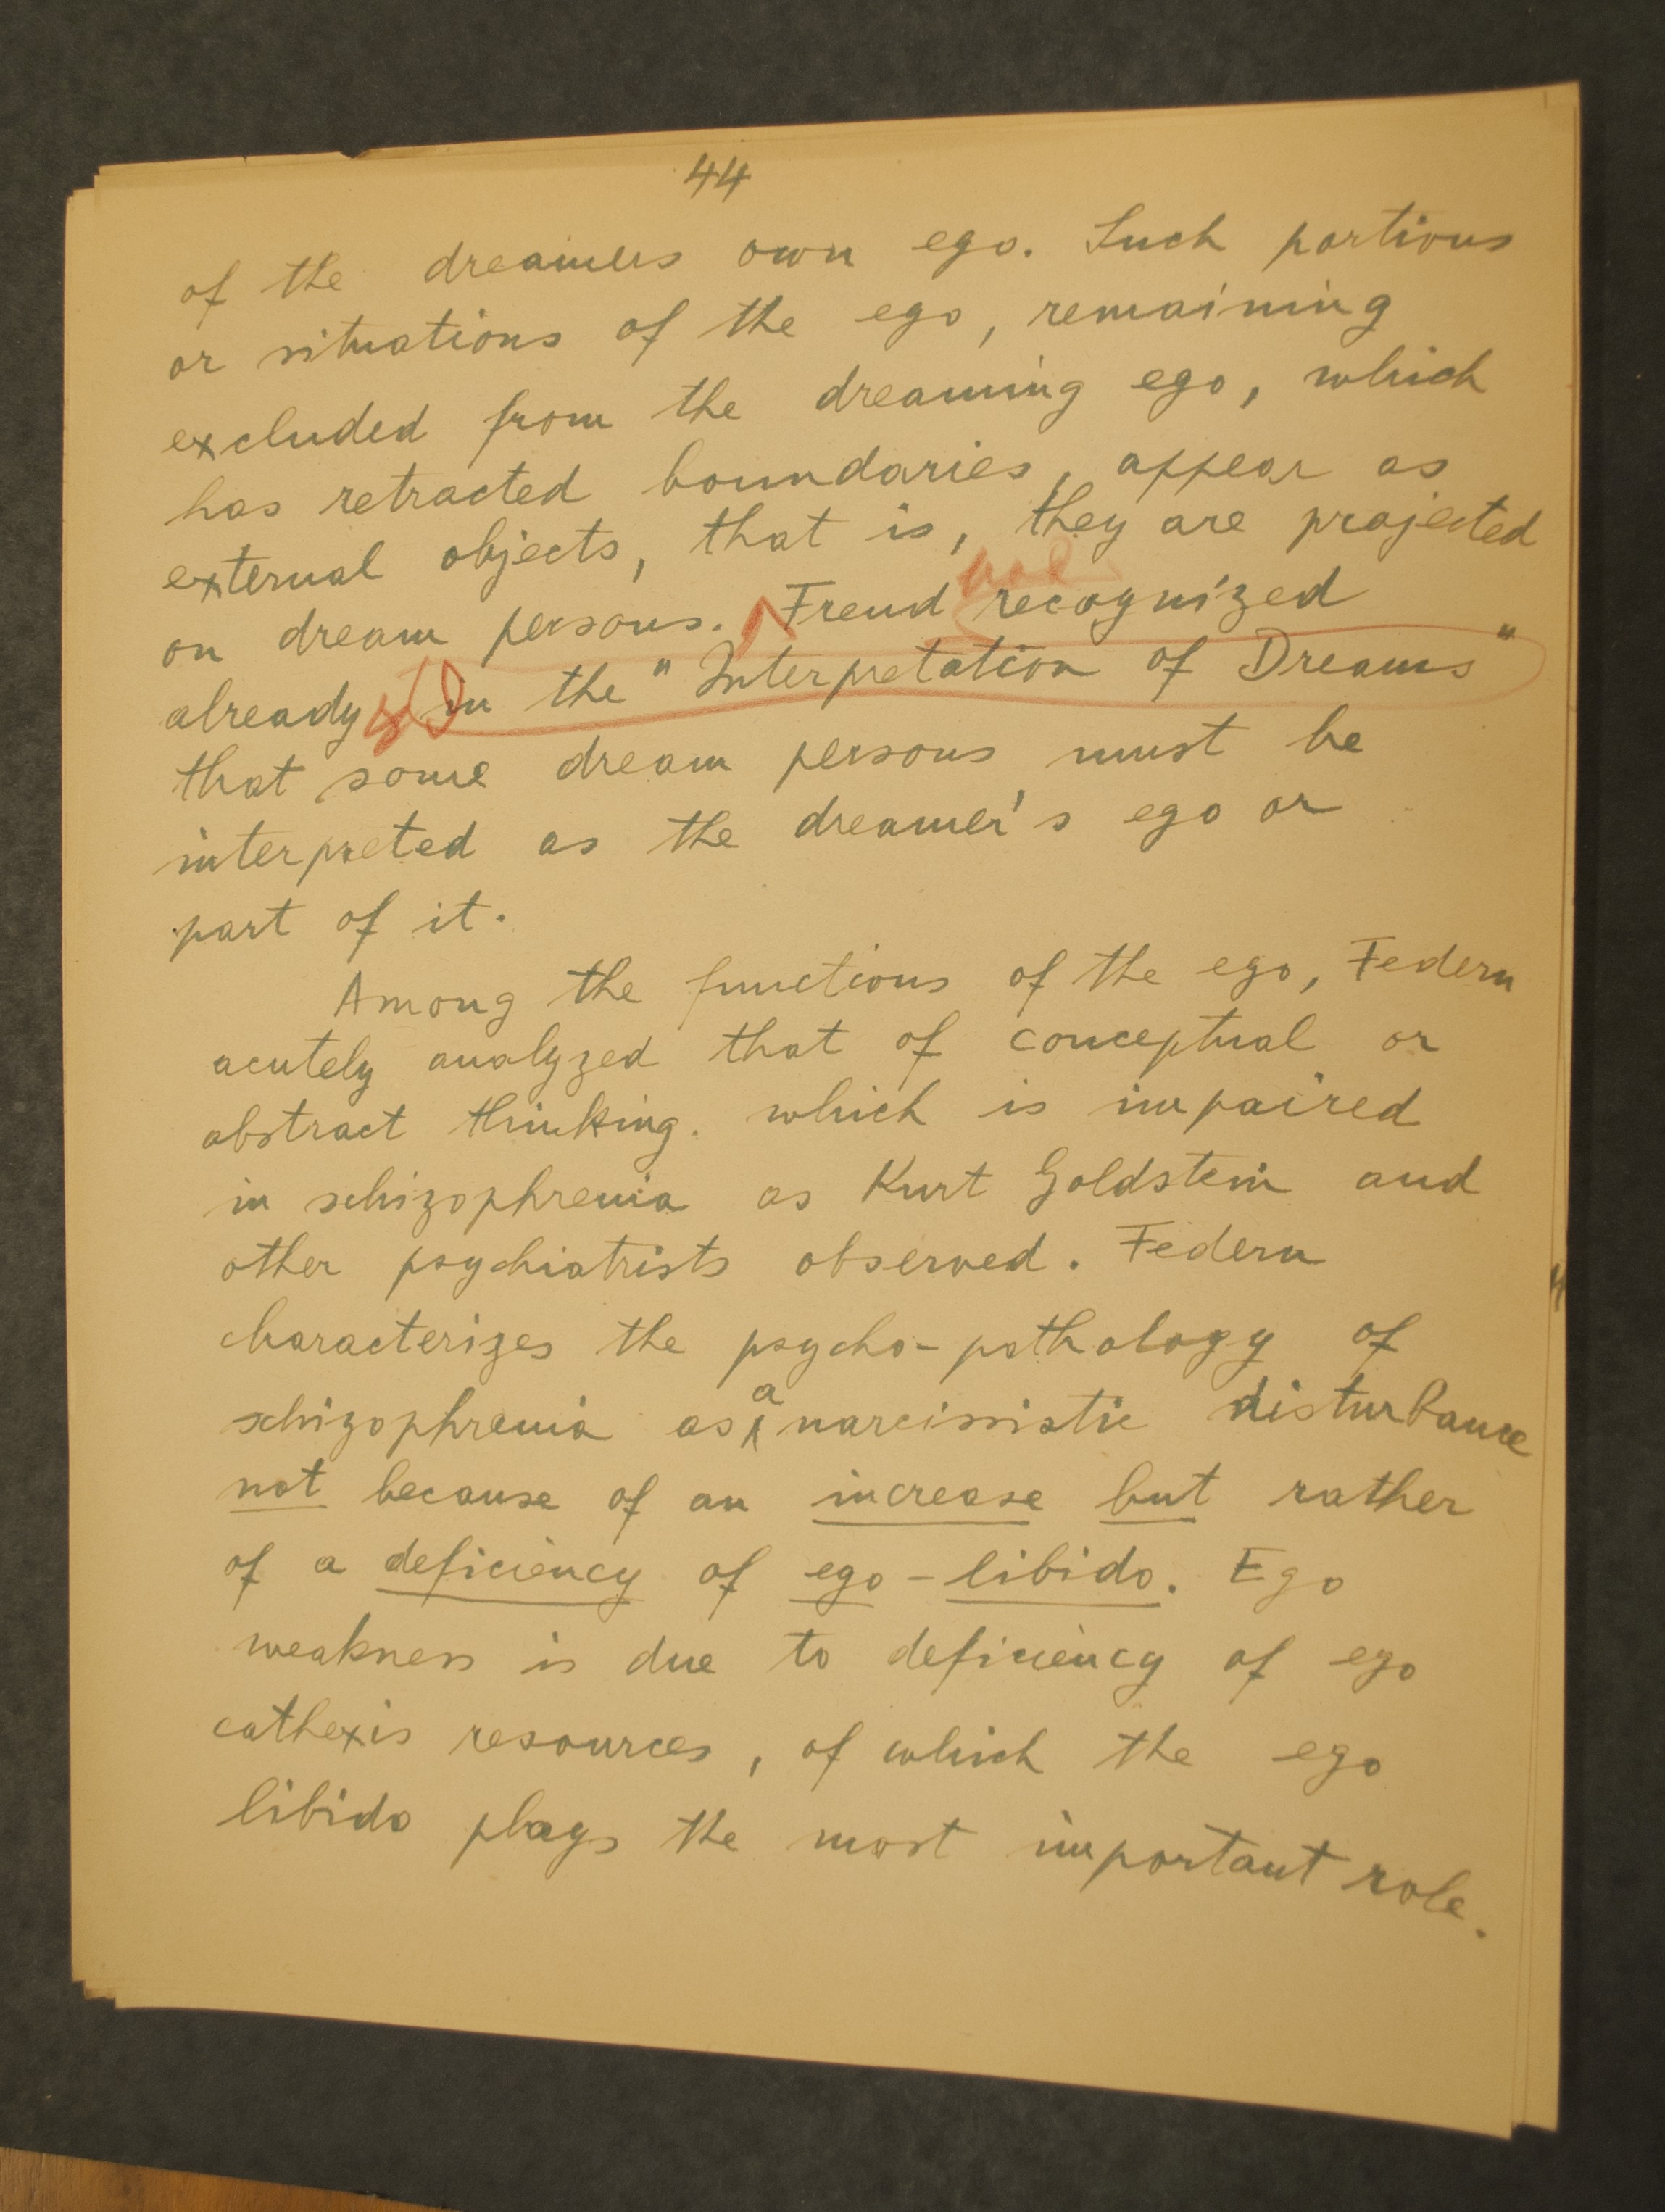 44
of the dreamers own ego. Such portions
or situations of the ego, remaining
excluded from the dreaming ego, which
has retracted boundaries, appear as
external objects, that is, they are projected
had
on dream persons. Freud recognized
already in the "Interpretation of Dreams"
that some dream persons must be
interpreted as the dreamer's ego or
part of it.
Among the functions of the ego, Federn
acutely analyzed that of conceptual or
abstract thinking. which is impaired
in schizophrenia as Kurt Goldstein and
other psychiatrists observed. Federn
characterizes the psycho-pathology of
schizophrenia as a narcissistic disturbance
not because of an increase but rather
of a deficiency of ego-libido. Ego
weakness is due to deficiency of ego
cathexis resources, of which the ego
libido plays the most important role.